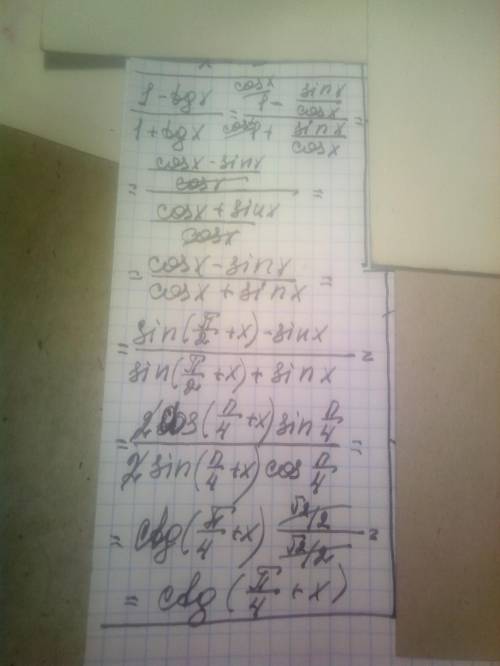 (1 - tgx)/(1 + tgx) = (^{cosx}1 - sinx/cosx)/(^{cosx}1 + sinx/cosx) =
= ((cosx - sinx)/cosx)/((cosx + sinx)/cosx) =
= (cosx - sinx)/(cosx + sinx) =
= (sin(π/2 + x) - sinx)/(sin(π/2 + x) + sinx) =
= (2cos(π/4 + x) sin π/4)/(2sin(π/4 + x) cos π/4) =
= ctg(π/4 + x) (√2/2)/(√2/2) =
= ctg(π/4 + x)